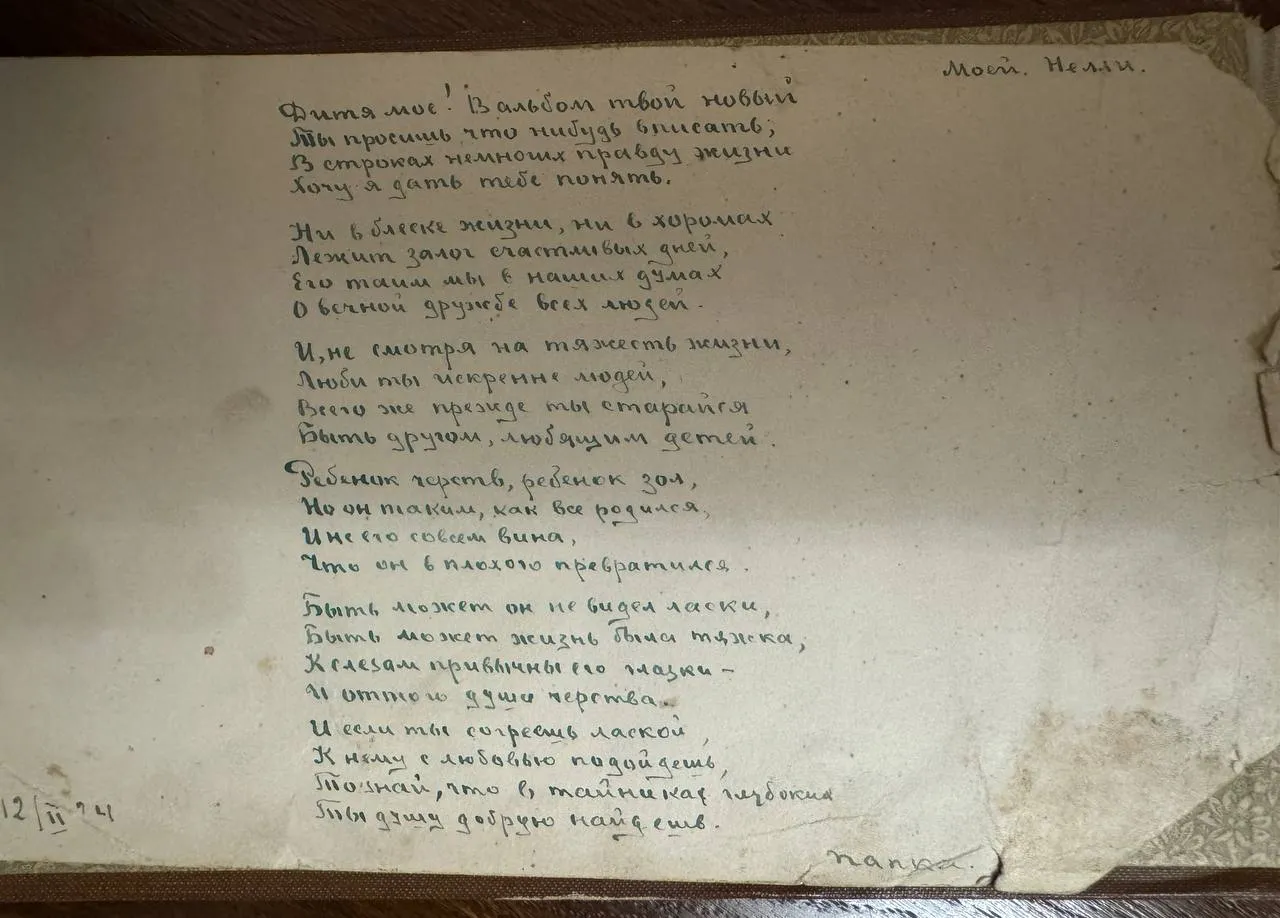 Моей. Нелли.
Дитя мое! В альбом твой новый
Ты просишь что нибудь вписать;
В строках немногих правду жизни
Хочу я дать тебе понять.
Ни в блеске жизни, ни в хоромах
Лежит залог счастливых дней,
Его таим мы в наших думах
О вечной дружбе всех людей.
И, не смотря на тяжесть жизни,
Люби ты искренне людей,
Всего же прежде ты старайся
Быть другом, любящим детей.
Ребенок черств, ребенок зол,
Но он таким, как все родился,
И не его совсем вина,
Что он в плохого превратился.
Быть может он не видел ласки,
Быть может жизнь была тяжка,
К слезам привычны его глазки –
И оттого душа черства.
И если ты согреешь лаской,
К нему с любовью подойдешь,
То знай, что в тайниках глубоких
Ты душу добрую найдешь.
12/II 24
папка.